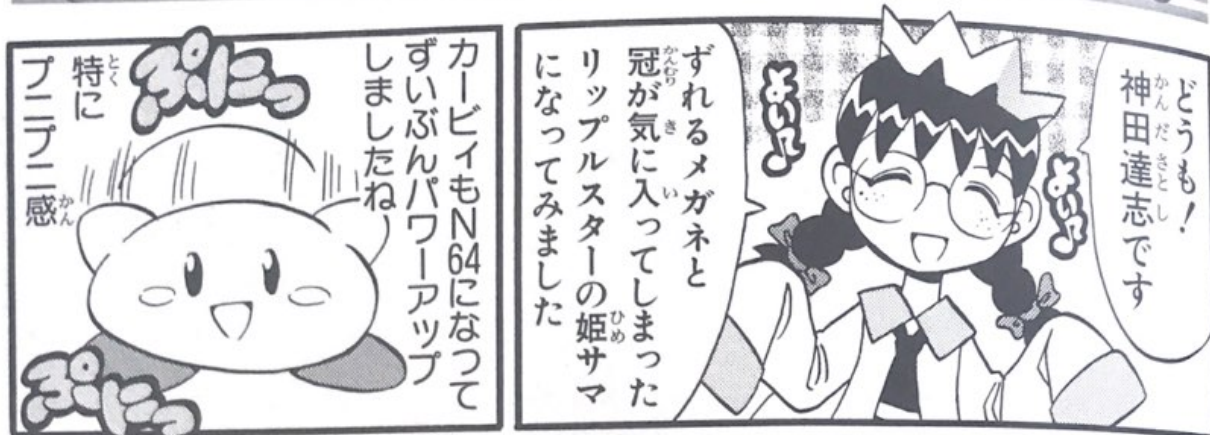 どうも！
神田達志です
よいっ♪
よいっ♪
ずれるメガネと
冠が気に入ってしまった
リップルスターの姫サマ
になってみました
カービィもN64になって
ずいぶんパワーアップ
しましたね
ぷにっ
特に
プニプニ感
ぷにっ